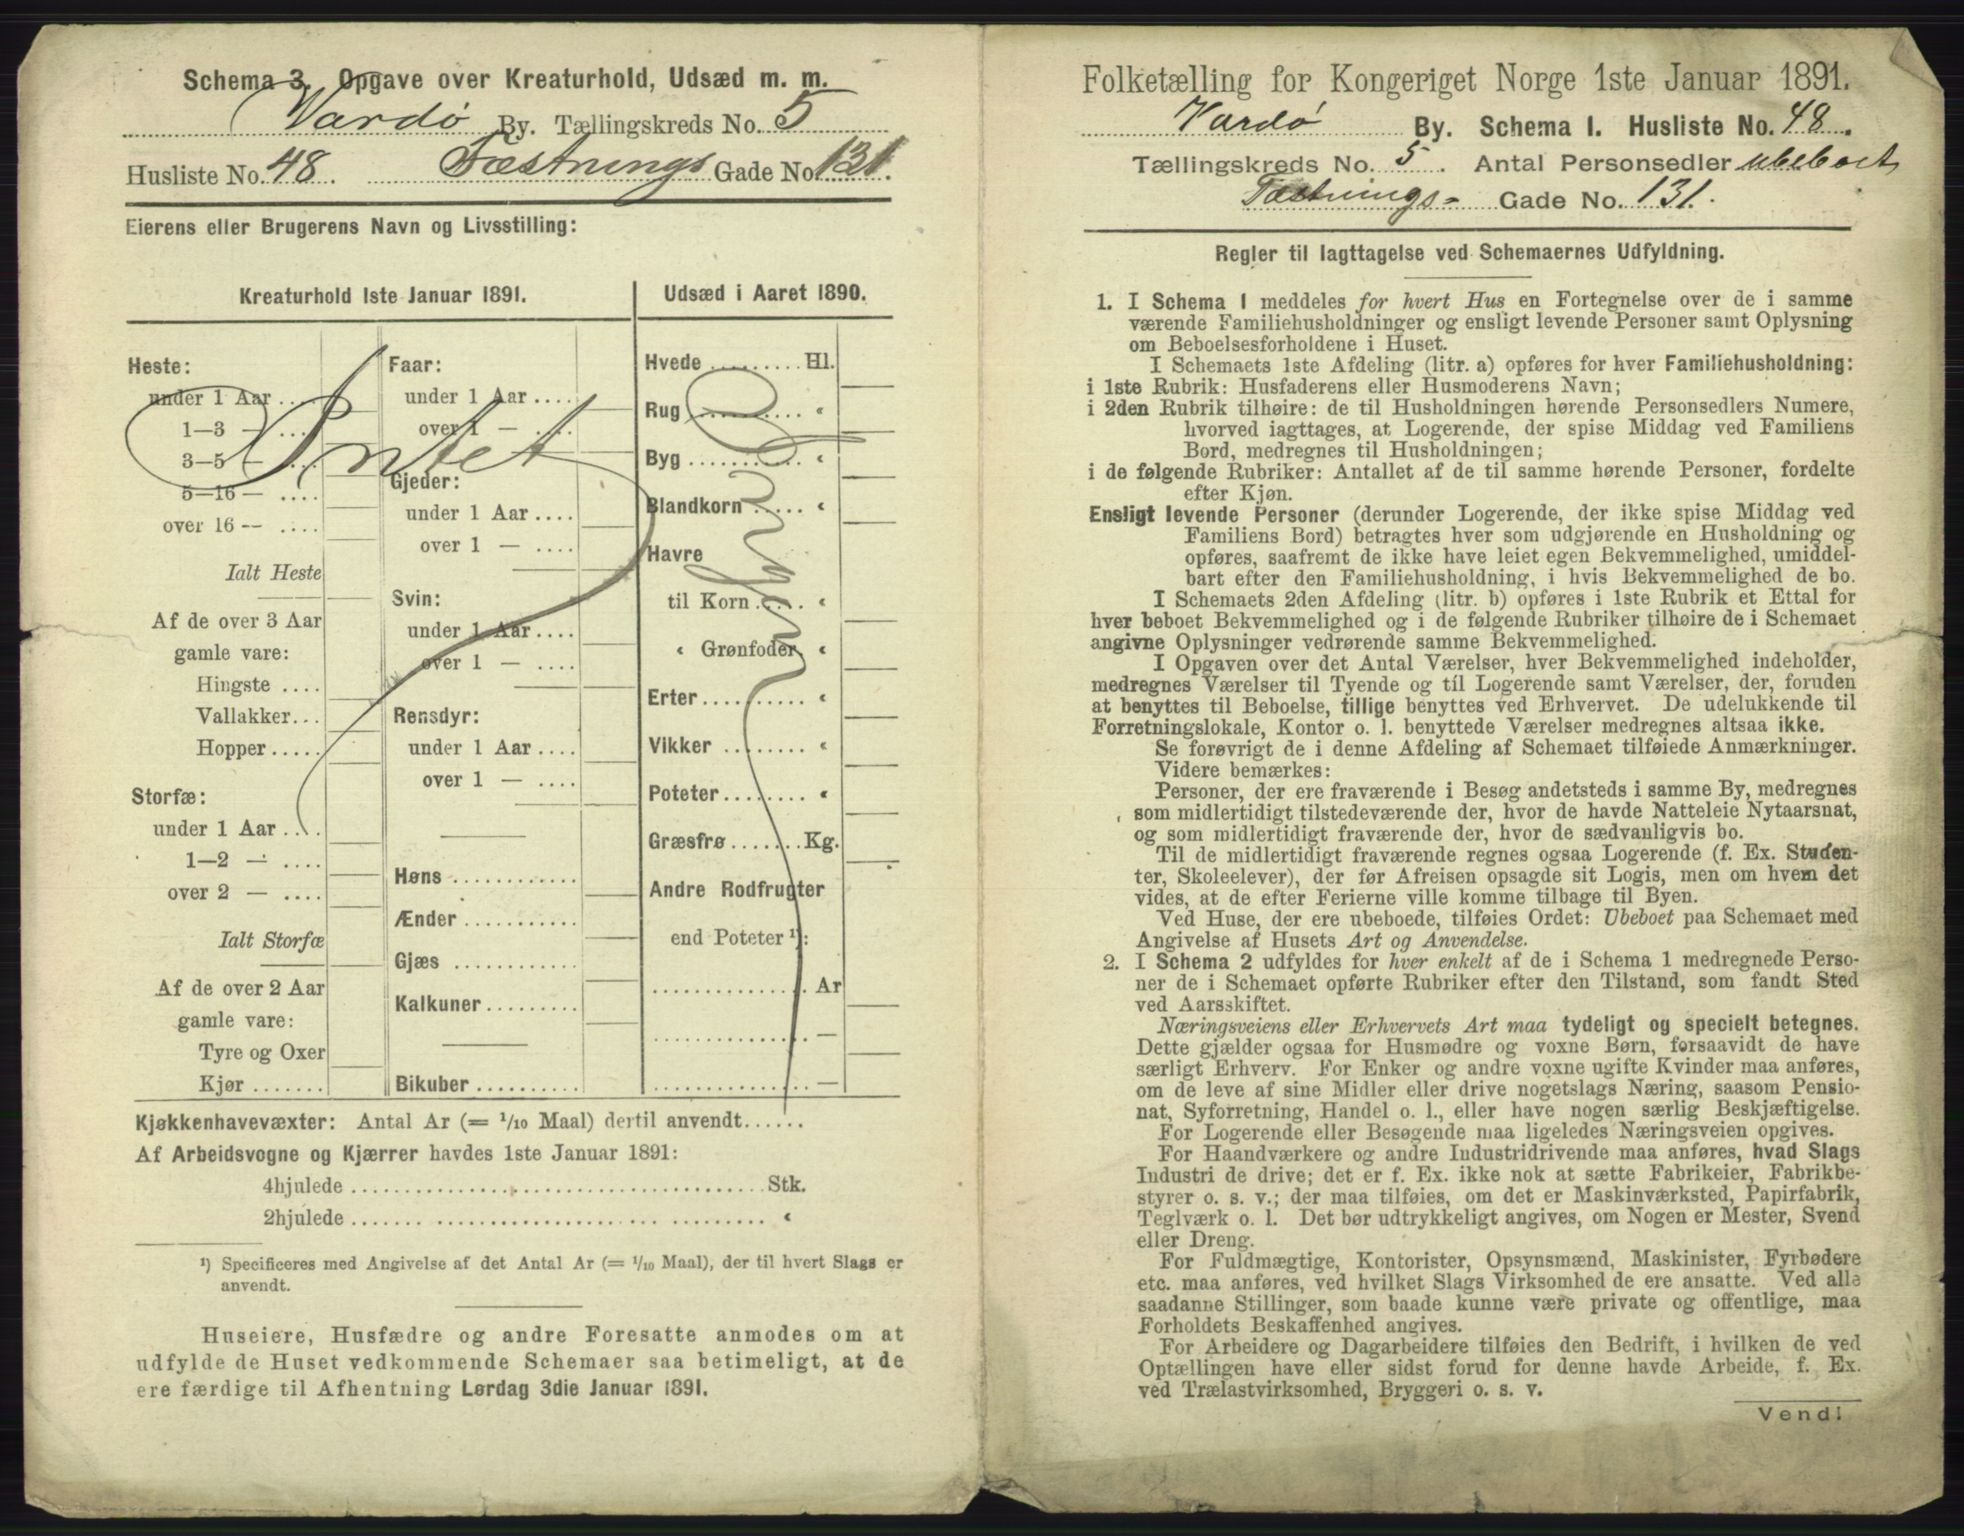 Schema 3. Opgave over Kreaturhold, Udsæd m. m.
Vardø By. Tællingskreds No. 5
Husliste No. 48. Fæstnings Gade No. 131.
Eierens eller Brugerens Navn og Livsstilling:
Kreaturhold 1ste Januar 1891.
Heste:
under 1 Aar ....
1—3 — ....
3—5 — ....
5—16 — ....
over 16 -- ....
Ialt Heste
Af de over 3 Aar
gamle vare:
Hingste ....
Vallakker...
Hopper .....
Storfæ:
under 1 Aar ....
1—2 — ....
over 2 — ....
Ialt Storfæ
Af de over 2 Aar
gamle vare:
Tyre og Oxer
Kjør .......
Faar:
under 1 Aar ....
over 1 — ....
Intet
Gjeder:
under 1 Aar ....
over 1 — ....
Svin:
under 1 Aar....
over 1 — ....
Rensdyr:
under 1 Aar ....
over 1 — ....
Høns ............
Ænder ...........
Gjæs ............
Kalkuner .........
Bikuber ..........
Udsæd i Aaret 1890.
Hvede .......... Hl.
Rug ........... «
Byg ........... «
Blandkorn ..... «
Havre
til Korn ..... «
« Grønfoder «
Erter .......... «
Vikker ........ «
Poteter ........ «
Græsfrø ....... Kg.
Andre Rodfrugter
end Poteter ¹):
............... Ar
............... —
............... —
Kjøkkenhavevæxter: Antal Ar (= 1/10 Maal) dertil anvendt......
Af Arbeidsvogne og Kjærrer havdes 1ste Januar 1891:
4hjulede ........................................ Stk.
2hjulede ........................................ «
¹) Specificeres med Angivelse af det Antal Ar (= 1/10 Maal), der til hvert Slags er
anvendt.
Huseiere, Husfædre og andre Foresatte anmodes om at
udfylde de Huset vedkommende Schemaer saa betimeligt, at de
ere færdige til Afhentning Lørdag 3die Januar 1891.
Folketælling for Kongeriget Norge 1ste Januar 1891.
Vardø By. Schema 1. Husliste No. 48.
Tællingskreds No. 5. Antal Personsedler ubeboet
Fæstnings- Gade No. 131.
Regler til Iagttagelse ved Schemaernes Udfyldning.
1. I Schema 1 meddeles for hvert Hus en Fortegnelse over de i samme
værende Familiehusholdninger og ensligt levende Personer samt Oplysning
om Beboelsesforholdene i Huset.
I Schemaets 1ste Afdeling (litr. a) opføres for hver Familiehusholdning:
i 1ste Rubrik: Husfaderens eller Husmoderens Navn;
i 2den Rubrik tilhøire: de til Husholdningen hørende Personsedlers Numere,
hvorved iagttages, at Logerende, der spise Middag ved Familiens
Bord, medregnes til Husholdningen;
i de følgende Rubriker: Antallet af de til samme hørende Personer, fordelte
efter Kjøn.
Ensligt levende Personer (derunder Logerende, der ikke spise Middag ved
Familiens Bord) betragtes hver som udgjørende en Husholdning og
opføres, saafremt de ikke have leiet egen Bekvemmelighed, umiddel-
bart efter den Familiehusholdning, i hvis Bekvemmelighed de bo.
I Schemaets 2den Afdeling (litr. b) opføres i 1ste Rubrik et Ettal for
hver beboet Bekvemmelighed og i de følgende Rubriker tilhøire de i Schemaet
angivne Oplysninger vedrørende samme Bekvemmelighed.
I Opgaven over det Antal Værelser, hver Bekvemmelighed indeholder,
medregnes Værelser til Tyende og til Logerende samt Værelser, der, foruden
at benyttes til Beboelse, tillige benyttes ved Erhvervet. De udelukkende til
Forretningslokale, Kontor o. l. benyttede Værelser medregnes altsaa ikke.
Se forøvrigt de i denne Afdeling af Schemaet tilføiede Anmærkninger.
Videre bemærkes:
Personer, der ere fraværende i Besøg andetsteds i samme By, medregnes
som midlertidigt tilstedeværende der, hvor de havde Natteleie Nytaarsnat,
og som midlertidigt fraværende der, hvor de sædvanligvis bo.
Til de midlertidigt fraværende regnes ogsaa Logerende (f. Ex. Studen-
ter, Skoleelever), der før Afreisen opsagde sit Logis, men om hvem det
vides, at de efter Ferierne ville komme tilbage til Byen.
Ved Huse, der ere ubeboede, tilføies Ordet: Ubeboet paa Schemaet med
Angivelse af Husets Art og Anvendelse.
2. I Schema 2 udfyldes for hver enkelt af de i Schema 1 medregnede Perso-
ner de i Schemaet opførte Rubriker efter den Tilstand, som fandt Sted
ved Aarsskiftet.
Næringsveiens eller Erhvervets Art maa tydeligt og specielt betegnes.
Dette gjælder ogsaa for Husmødre og voxne Børn, forsaavidt de have
særligt Erhverv. For Enker og andre voxne ugifte Kvinder maa anføres,
om de leve af sine Midler eller drive nogetslags Næring, saasom Pensio-
nat, Syforretning, Handel o. l., eller have nogen særlig Beskjæftigelse.
For Logerende eller Besøgende maa ligeledes Næringsveien opgives.
For Haandværkere og andre Industridrivende maa anføres, hvad Slags
Industri de drive; det er f. Ex. ikke nok at sætte Fabrikeier, Fabrikbe-
styrer o. s. v.; der maa tilføies, om det er Maskinværksted, Papirfabrik,
Teglværk o. l. Det bør udtrykkeligt angives, om Nogen er Mester, Svend
eller Dreng.
For Fuldmægtige, Kontorister, Opsynsmænd, Maskinister, Fyrbødere
etc. maa anføres, ved hvilket Slags Virksomhed de ere ansatte. Ved alle
saadanne Stillinger, som baade kunne være private og offentlige, maa
Forholdets Beskaffenhed angives.
For Arbeidere og Dagarbeidere tilføies den Bedrift, i hvilken de ved
Optællingen have eller sidst forud for denne havde Arbeide, f. Ex.
ved Trælastvirksomhed, Bryggeri o. s. v.
Vend!